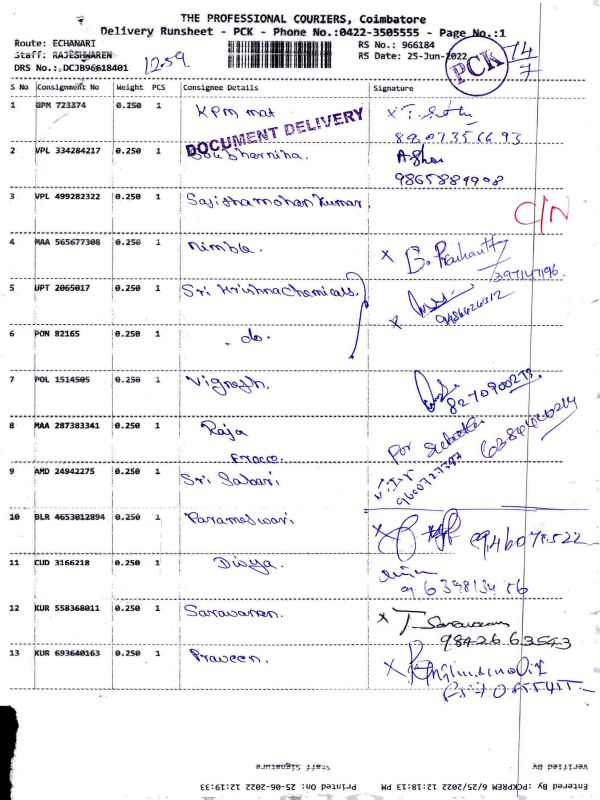 THE PROFESSIONAL COURIERS, Coimbatore
Delivery Runsheet - PCK - Phone No.:0422-3505555 - Page No.:1
Route: ECHANARI RS No.: 966184
Staff: RAJESHWAREN RS Date: 25-Jun-2022
DRS No.:,DCJB96618401 12:59 PCK 74/7
S No Consignment No Weight PCS Consignee Details Signature
1 GPM 723374 0.250 1 KPM mat
8807356693
DOCUMENT DELIVERY
2 VPL 334284217 0.250 1
9865889908
3 VPL 499282322 0.250 1 Sajisha mohan kumar. C/N
4 MAA 565677308 0.250 1 nimble. X B. Prashanth
5 UPT 2065017 0.250 1 Sri Krishna Chemicals. X
9486626312
6 PON 82165 0.250 1 - do -
7 POL 1514505 0.250 1 Vignesh.
8270900273
8 MAA 287383341 0.250 1 Raja
9 AMD 24942275 0.250 1 Sri Sabari
10 BLR 4653012894 0.250 1 Parameswari X
11 CUD 3166218 0.250 1 Divya.
12 KUR 558368011 0.250 1 Saravanan. X T. Saravanan
9842663543
13 KUR 693640163 0.250 1 Praveen. X
Staff Signature Verified By
Printed On: 25-06-2022 12:19:33 Entered By :PCKPREM 6/25/2022 12:18:13 PM